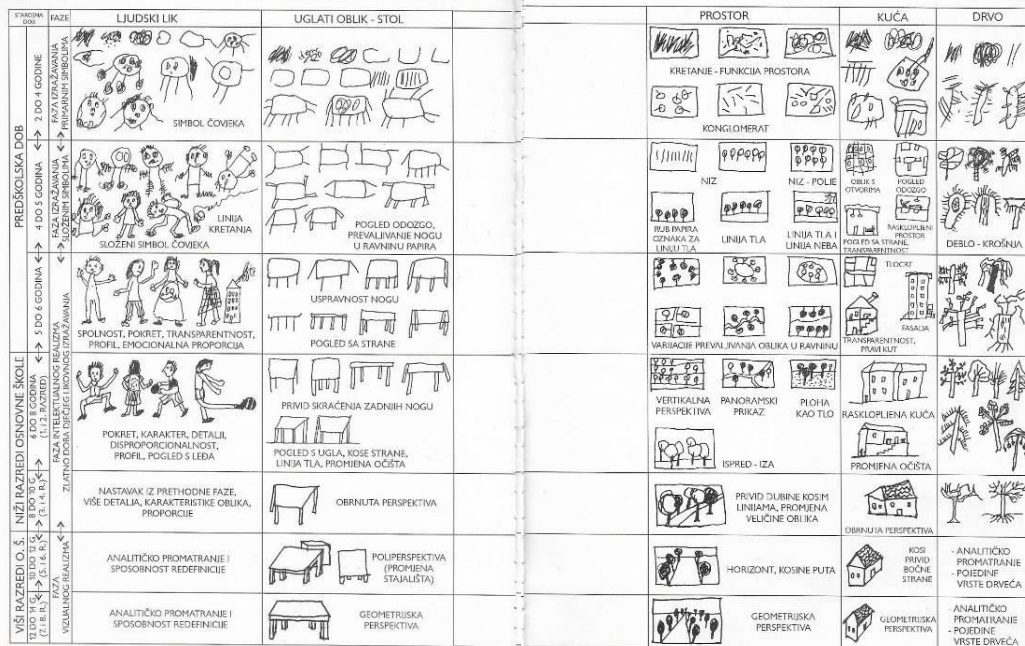 STAROSNA DOB
FAZE
LJUDSKI LIK
UGLATI OBLIK - STOL
PROSTOR
KUĆA
DRVO
PREDŠKOLSKA DOB
2 DO 4 GODINE
FAZA IZRAŽAVANJA
PRIMARNIM SIMBOLIMA
SIMBOL ČOVJEKA
KRETANJE - FUNKCIJA PROSTORA
KONGLOMERAT
4 DO 5 GODINA
FAZA IZRAŽAVANJA
SLOŽENIM SIMBOLIMA
LINIJA
KRETANJA
SLOŽENI SIMBOL ČOVJEKA
POGLED ODOZGO,
PREVALJIVANJE NOGU
U RAVNINU PAPIRA
NIZ
NIZ - POLJE
RUB PAPIRA
OZNAKA ZA
LINIJU TLA
LINIJA TLA
LINIJA TLA I
LINIJA NEBA
OBLIK S
OTVORIMA
POGLED
ODOZGO
POGLED SA STRANE,
TRANSPARENTNOST
RASKLOPLJENI
PROSTOR
DEBLO - KROŠNJA
5 DO 6 GODINA
FAZA INTELEKTUALNOG REALIZMA
ZLATNO DOBA DJEČJEG LIKOVNOG IZRAŽAVANJA
SPOLNOST, POKRET, TRANSPARENTNOST,
PROFIL, EMOCIONALNA PROPORCIJA
USPRAVNOST NOGU
POGLED SA STRANE
VARIJACIJE PREVALJIVANJA OBLIKA U RAVNINU
TLOCRT
FASADA
TRANSPARENTNOST,
PRAVI KUT
NIŽI RAZREDI OSNOVNE ŠKOLE
6 DO 8 GODINA
(1. I 2. RAZRED)
POKRET, KARAKTER, DETALJI,
DISPROPORCIONALNOST,
PROFIL, POGLED S LEĐA
PRIVID SKRAĆENJA ZADNJIH NOGU
POGLED S UGLA, KOSE STRANE,
LINIJA TLA, PROMJENA OČIŠTA
VERTIKALNA
PERSPEKTIVA
PANORAMSKI
PRIKAZ
PLOHA
KAO TLO
ISPRED - IZA
RASKLOPLJENA KUĆA
PROMJENA OČIŠTA
8 DO 10 G.
(3. I 4. R.)
NASTAVAK IZ PRETHODNE FAZE,
VIŠE DETALJA, KARAKTERISTIKE OBLIKA,
PROPORCIJE
OBRNUTA PERSPEKTIVA
PRIVID DUBINE KOSIM
LINIJAMA, PROMJENA
VELIČINE OBLIKA
OBRNUTA PERSPEKTIVA
VIŠI RAZREDI O. Š.
10 DO 12 G.
(5. I 6. R.)
FAZA
VIZUALNOG REALIZMA
ANALITIČKO PROMATRANJE I
SPOSOBNOST REDEFINICIJE
POLIPERSPEKTIVA
(PROMJENA
STAJALIŠTA)
HORIZONT, KOSINE PUTA
KOSI
PRIVID
BOČNE
STRANE
- ANALITIČKO
PROMATRANJE
- POJEDINE
VRSTE DRVEĆA
12 DO 14 G.
(7. I 8. R.)
ANALITIČKO PROMATRANJE I
SPOSOBNOST REDEFINICIJE
GEOMETRIJSKA
PERSPEKTIVA
GEOMETRIJSKA
PERSPEKTIVA
GEOMETRIJSKA
PERSPEKTIVA
- ANALITIČKO
PROMATRANJE
- POJEDINE
VRSTE DRVEĆA